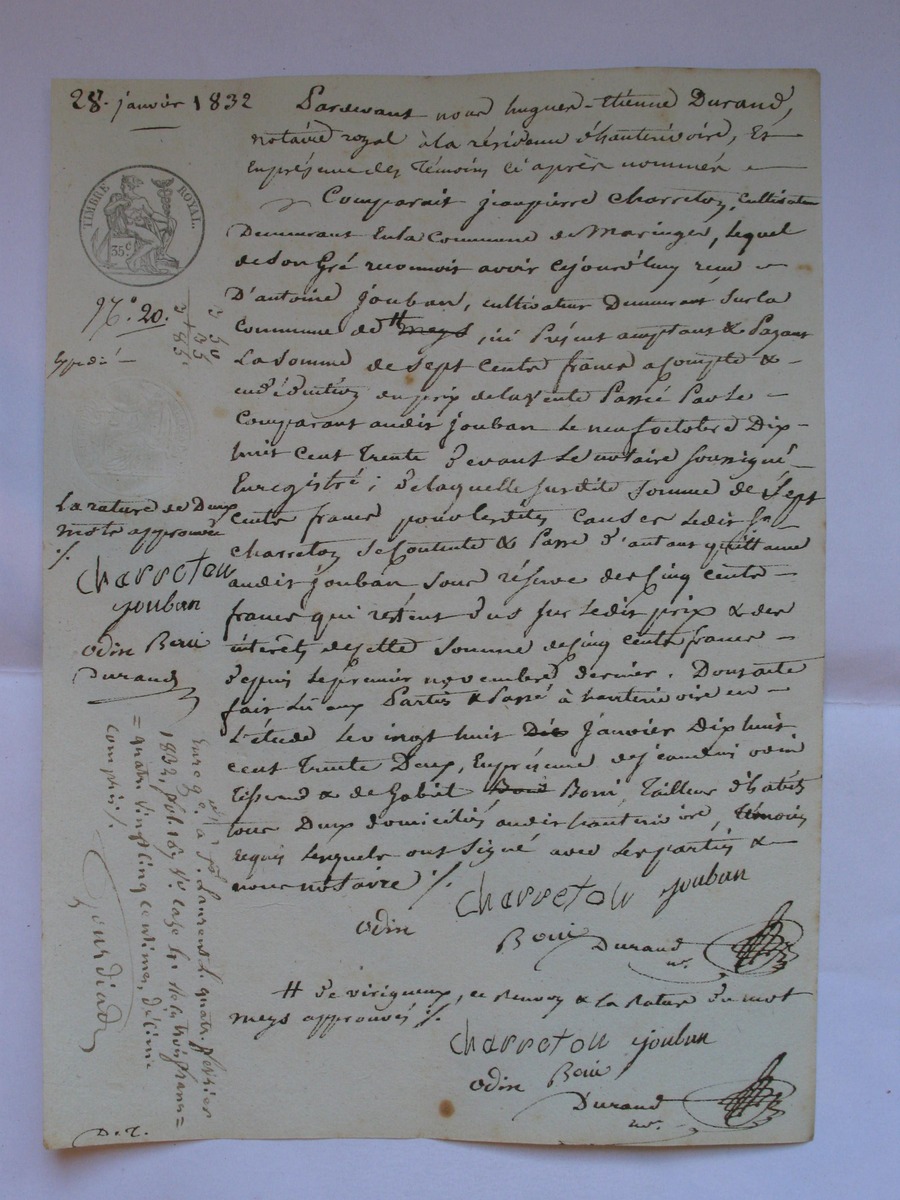 28. janvier 1832
Pardevant nous hugues-Etienne Durand,
notaire royal à la résidence d'hauterivoire, Et
En présence des témoins ci après nommés —
Comparait jeanpierre Charreton, Cultivateur
Demeurant En la Commune de Maringes, lequel
de son Gré reconnoit avoir cejourd'huy reçu —
D'antoine jouban, cultivateur Demeurant sur la
Commune de # meys, ici Présent acceptant & Payant
La somme de sept cents francs acompte &
en déduction du prix de la vente Passé Par le —
Comparant audit jouban le neuf octobre Dix-
huit cent trente devant le notaire soussigné
Enregistré; de laquelle susdite somme de sept
cents francs pour les dites causes ledit Sr
charreton se contente & Passe d'autant quittance
audit jouban sous réserve des cinq cents —
francs qui restent dus sur ledit prix & des
intérêts de cette somme de cinq cents francs —
depuis le premier novembre dernier. Dont acte
fait lu aux Parties & Passé à hauterivoire en —
L'étude le vingt huit Dix janvier Dix huit
cent trente Deux, En présence de jeandenis odin
Tisserand & de Gabriel Boni Boni, Tailleur d'habits
tous Deux domiciliés audit hauterivoire, témoins
requis lesquels ont signé avec les parties &
nous notaire ./.
Charreton jouban
odin
Boni Durand
nre.
# de virigneux, ce Renvoy & la Rature du mot
meys approuvés ./.
Charreton jouban
odin Boni
Durand
nre.
TIMBRE ROYAL.
35c.
N.° 20.
Expedié —
3 50
35
3 + 85
La rature de Deux
mots approuvée
./.
Charreton
jouban
odin Boni
Durand
Enregé. à St. Laurent le quatre février
1832, fol. 167 vo. case 4e. Reçu trois francs =
= quatre vingt cinq centimes, décime
compris ./.
D. T.